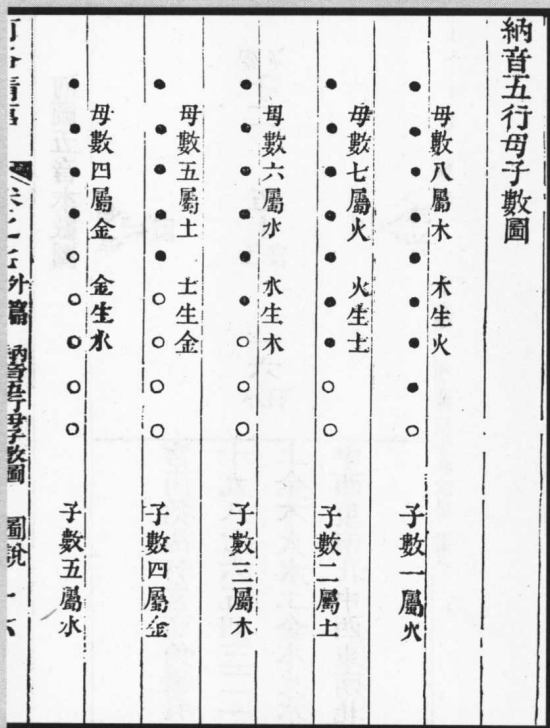 納音五行母子數圖
母數八屬木　木生火
子數一屬火
母數七屬火　火生土
子數二屬土
母數六屬水　水生木
子數三屬木
母數五屬土　土生金
子數四屬金
母數四屬金　金生水
子數五屬水
外篇　納音五行母子數圖　圖說